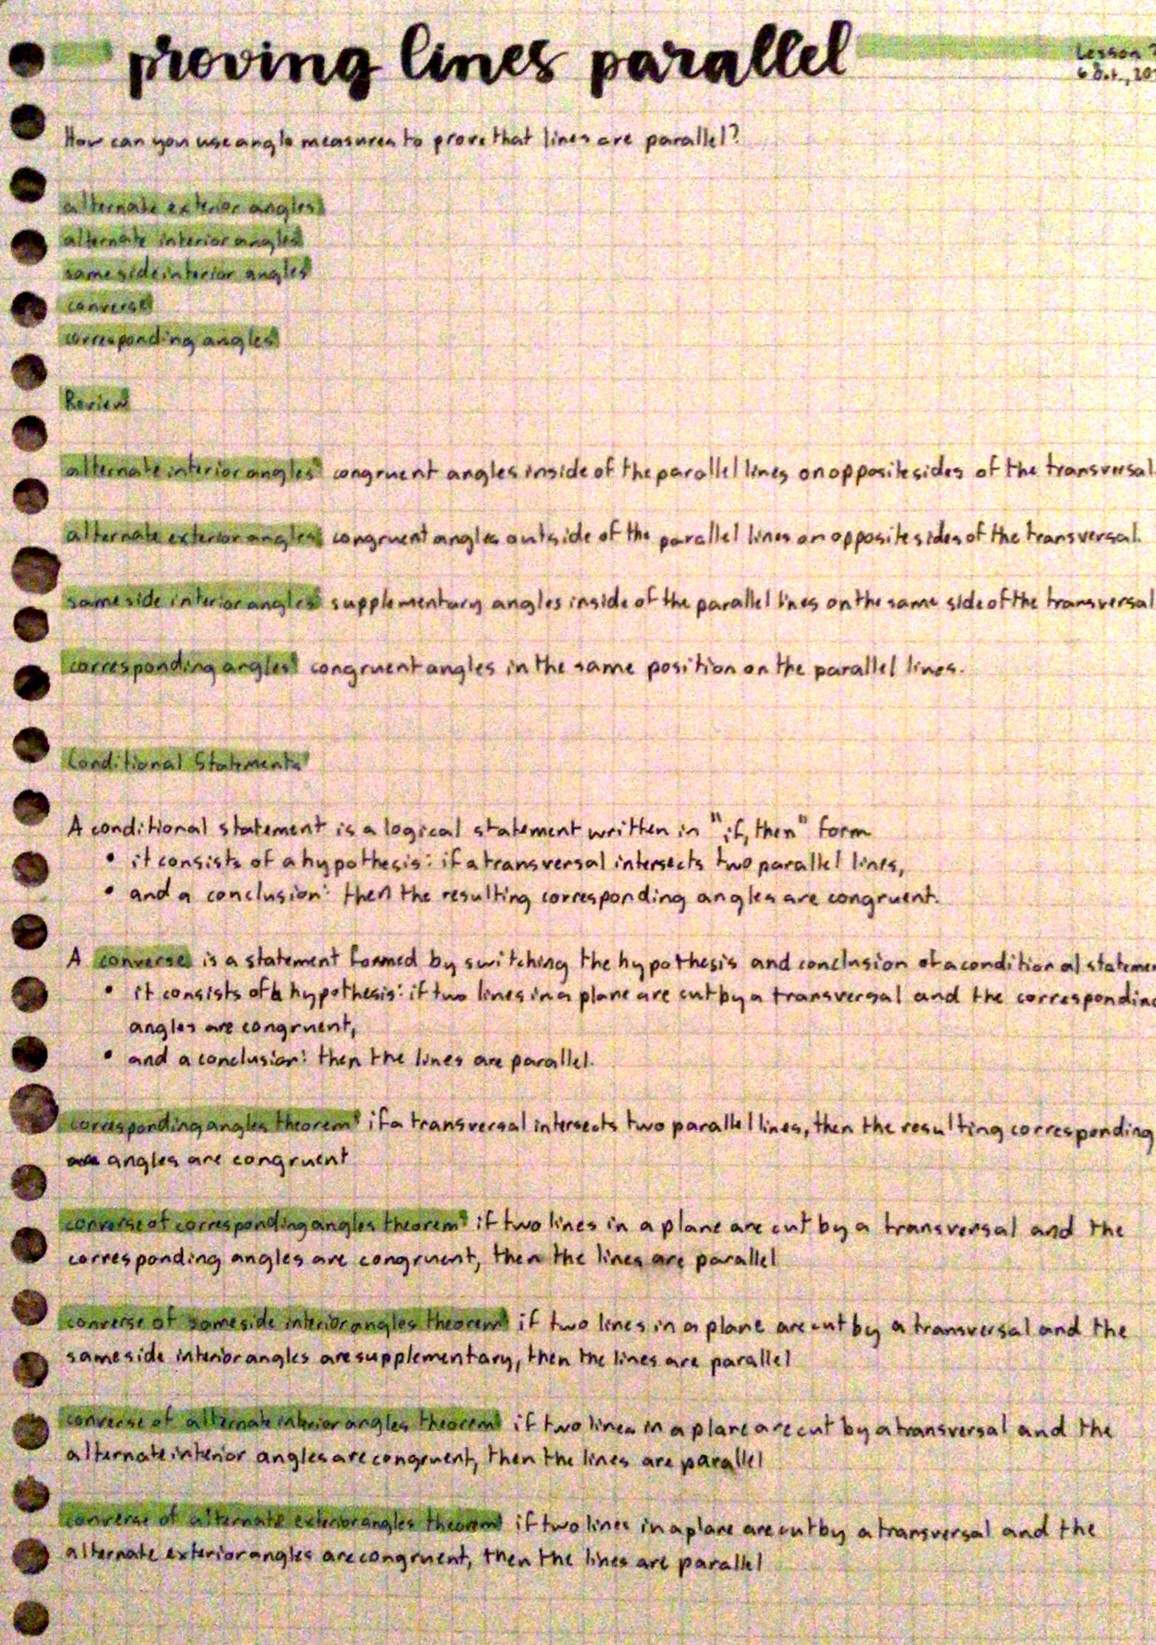 proving lines parallel
Lesson
How can you use angle measures to prove that lines are parallel?
alternate exterior angles
alternate interior angles
same side interior angles
converse
corresponding angles
Review
alternate interior angles congruent angles inside of the parallel lines on opposite sides of the transversal
alternate exterior angles congruent angles outside of the parallel lines on opposite sides of the transversal.
same side interior angles supplementary angles inside of the parallel lines on the same side of the transversal
corresponding angles congruent angles in the same position on the parallel lines.
Conditional Statements
A conditional statement is a logical statement written in "if, then" form
• it consists of a hypothesis: if a transversal intersects two parallel lines,
• and a conclusion: then the resulting corresponding angles are congruent.
A converse is a statement formed by switching the hypothesis and conclusion of a conditional
• it consists of a hypothesis: if two lines in a plane are cut by a transversal and the corresponding
angles are congruent,
• and a conclusion: then the lines are parallel.
corresponding angles theorem if a transversal intersects two parallel lines, then the resulting corresponding
angles are congruent
converse of corresponding angles theorem if two lines in a plane are cut by a transversal and the
corresponding angles are congruent, then the lines are parallel
converse of same side interior angles theorem if two lines in a plane are cut by a transversal and the
same side interior angles are supplementary, then the lines are parallel
converse of alternate interior angles theorem if two lines in a plane are cut by a transversal and the
alternate interior angles are congruent, then the lines are parallel
converse of alternate exterior angles theorem if two lines in a plane are cut by a transversal and the
alternate exterior angles are congruent, then the lines are parallel